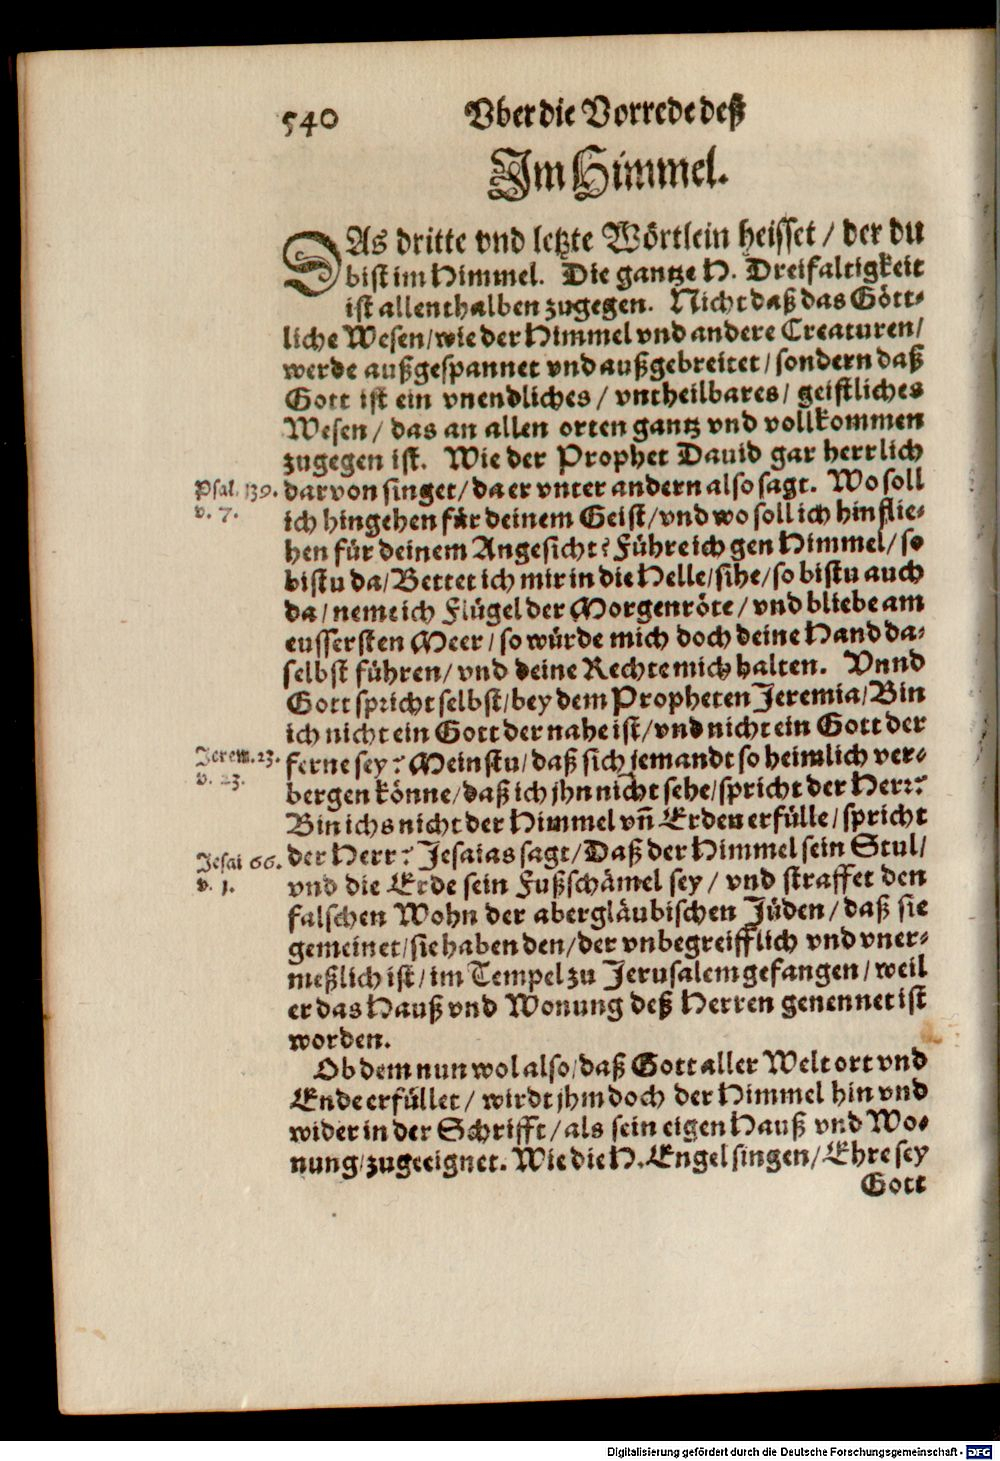 540 Vber die Vorrede deß
Im Himmel.
DAs dritte vnd letzte Wörtlein heisset / der du
bist im Himmel. Die gantze H. Dreifaltigkeit
ist allenthalben zugegen. Nicht daß das Gött-
liche Wesen / wie der Himmel vnd andere Creaturen /
werde außgespannet vnd außgebreitet / sondern daß
Gott ist ein vnendliches / vntheilbares / geistliches
Wesen / das an allen orten gantz vnd vollkommen
zugegen ist. Wie der Prophet Dauid gar herrlich
Psal. 139.
v. 7.
darvon singet / da er vnter andern also sagt. Wo soll
ich hingehen für deinem Geist / vnd wo soll ich hin flie-
hen für deinem Angesicht? Führe ich gen Himmel / so
bistu da / Bettet ich mir in die Helle / sihe / so bistu auch
da / neme ich Flügel der Morgenröte / vnd bliebe am
eussersten Meer / so würde mich doch deine Hand da-
selbst führen / vnd deine Rechte mich halten. Vnnd
Gott spricht selbst / bey dem Propheten Jeremia / Bin
ich nicht ein Gott der nahe ist / vnd nicht ein Gott der
Jerem. 23.
v. 23.
ferne sey? Meinstu / daß sich jemandt so heimlich ver-
bergen könne / daß ich jhn nicht sehe / spricht der Herr?
Bin ichs nicht der Himmel vñ Erden erfülle / spricht
Jesai 66.
v. 1.
der Herr? Jesaias sagt / Daß der Himmel sein Stul /
vnd die Erde sein Fußschämel sey / vnd straffet den
falschen Wohn der abergläubischen Jüden / daß sie
gemeinet / sie haben den / der vnbegreifflich vnd vner-
meßlich ist / im Tempel zu Jerusalem gefangen / weil
er das Hauß vnd Wonung deß Herren genennet ist
worden.
Ob dem nun wol also / daß Gott aller Welt ort vnd
Ende erfüllet / wirdt jhm doch der Himmel hin vnd
wider in der Schrifft / als sein eigen Hauß vnd Wo-
nung / zugeeignet. Wie die H. Engel singen / Ehre sey
Gott
Digitalisierung gefördert durch die Deutsche Forschungsgemeinschaft - DFG